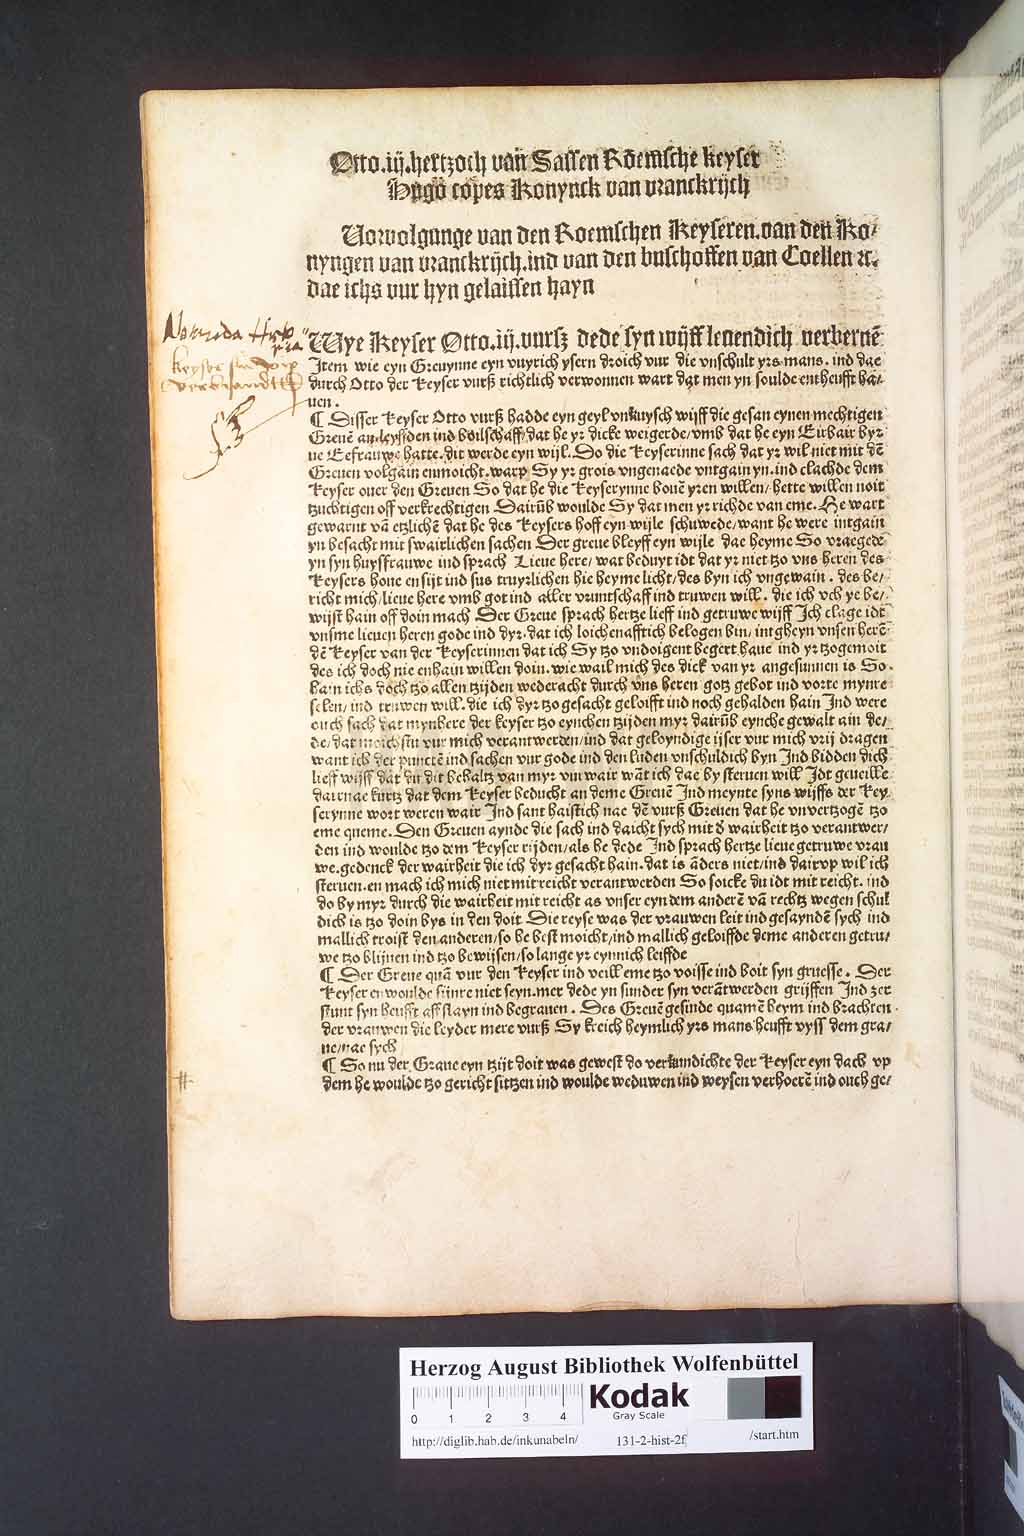 Otto.iij.hertzoch van Sassen Roemsche keyser
Hugo copes Konynck van vranckrijch
Uorvolgunge van den Roemschen Keyseren.van den Ko⸗
nyngen van vranckrijch.ind van den buschoffen van Coellen ⁊c.
dae ichs vur hyn gelaissen hayn
Wye Keyser Otto.iij.vursz dede syn wijff leuendich verbernē
Item wie eyn Greuynne eyn vuyrich ysern droich vur die vnschult yrs mans. ind dae
durch Otto der Keyser vurß richtlich verwonnen wart dat men yn soulde entheufft ha⸗
uen.
¶ Disser Keyser Otto vurß hadde eyn geyl vnkuysch wijff die gesan eynen mechtigen
Greuē an leyffden ind boilschaff/dat he yr dicke weigerde/vmb dat he eyn Eirbair byr⸗
ue Eefrauwe hatte.dit werde eyn wijl. Do die Keyserinne sach dat yr wil niet mit dē
Greuen volgain enmoicht.warp Sy yr grois vngenaede vntgain yn.ind clachde dem
Keyser ouer den Greuen So dat he die Keyserynne bouē yren willen/hette willen noit
tzuchtigen off verkrechtigen Dairūb woulde Sy dat men yr richde van eme. He wart
gewarnt vā etzlichē dat he des Keysers hoff eyn wijle schuwede/want he were intgain
yn besacht mit swairlichen sachen Der greue bleyff eyn wijle dae heyme So vraegede
yn syn huysfrauwe ind sprach Lieue here/wat beduyt idt dat yr niet tzo vns heren des
Keysers houe en sijt ind sus truyrlichen hie heyme licht/des byn ich vngewain. des be⸗
richt mich/lieue here vmb got ind aller vruntschaff ind truwen will. die ich vch ye be⸗
wijst hain off doin mach Der Greue sprach hertze lieff ind getruwe wijff Ich clage idt
vnsme lieuen heren gode ind dyr.dat ich loichenafftich belogen bin/intgheyn vnsen herē
dē Keyser van der Keyserinnen dat ich Sy tzo vndoigent begert haue ind yr tzogemoit
des ich doch nie enhain willen doin.wie wail mich des dick van yr angesunnen is So
hain ichs doch tzo allen tzijden wederacht durch vns heren gotz gebot ind vorte mynre
selen/ind truwen will.die ich dyr tzo gesacht geloifft ind noch gehalden hain Ind were
ouch sach dat mynhere der keyser tzo eynchen tzijden myr dairūb eynche gewalt ain de⸗
de/dat moichstu vur mich verantwerden/ind dat geloyndige ijser vur mich vrij dragen
want ich der punctē ind sachen vur gode ind den luden vnschuldich byn Ind bidden dich
lieff wijff dat du dit behaltz van myr vur wair wāt ich dae by steruen will Idt geueille
dairnae kurtz dat dem Keyser beducht an deme Greuē Ind meynte syns wijffs der Key⸗
serynne wort weren wair Ind sant haistich nae dē vurß Greuen dat he vnvertzogē tzo
eme queme. Den Greuen aynde die sach ind daicht sych mit d wairheit tzo verantwer⸗
den ind woulde tzo dem Keyser rijden/als he dede Ind sprach hertze lieue getruwe vrau
we.gedenck der wairheit die ich dyr gesacht hain.dat is āders niet/ind dairvp wil ich
steruen.en mach ich mich niet mit reicht verantwerden So soicke du idt mit reicht. ind
do by myr durch die wairheit mit reicht as vnser eyn dem anderē vā rechtz wegen schul
dich is tzo doin bys in den doit Die reyse was der vrauwen leit ind gesayndē sych ind
mallich troist den anderen/so he best moicht/ind mallich geloiffde deme anderen getru⸗
we tzo blijuen ind tzo bewijsen/so lange yr eynnich leiffde
¶ Der Greue quā vur den Keyser ind veill eme tzo voisse ind boit syn gruesse. Der
Keyser enwoulde sijnre niet seyn.mer dede yn sunder syn verātwerden grijffen Ind zer
stunt syn heufft affslayn ind begrauen. Des Greuē gesinde quamē heym ind brachten
der vrauwen die leyder mere vurß Sy kreich heymlich yrs mans heufft vyss dem gra⸗
ue/nae sych
¶ So nu der Graue eyn tzijt doit was gewest do verkundichte der Keyser eyn dach vp
dem he woulde tzo gericht sittzen ind woulde weduwen ind weysen verhoerē ind ouch ge⸗
Herzog August Bibliothek Wolfenbüttel
0 1 2 3 4
Kodak
Gray Scale
http://diglib.hab.de/inkunabeln/ 131-2-hist-2f /start.htm